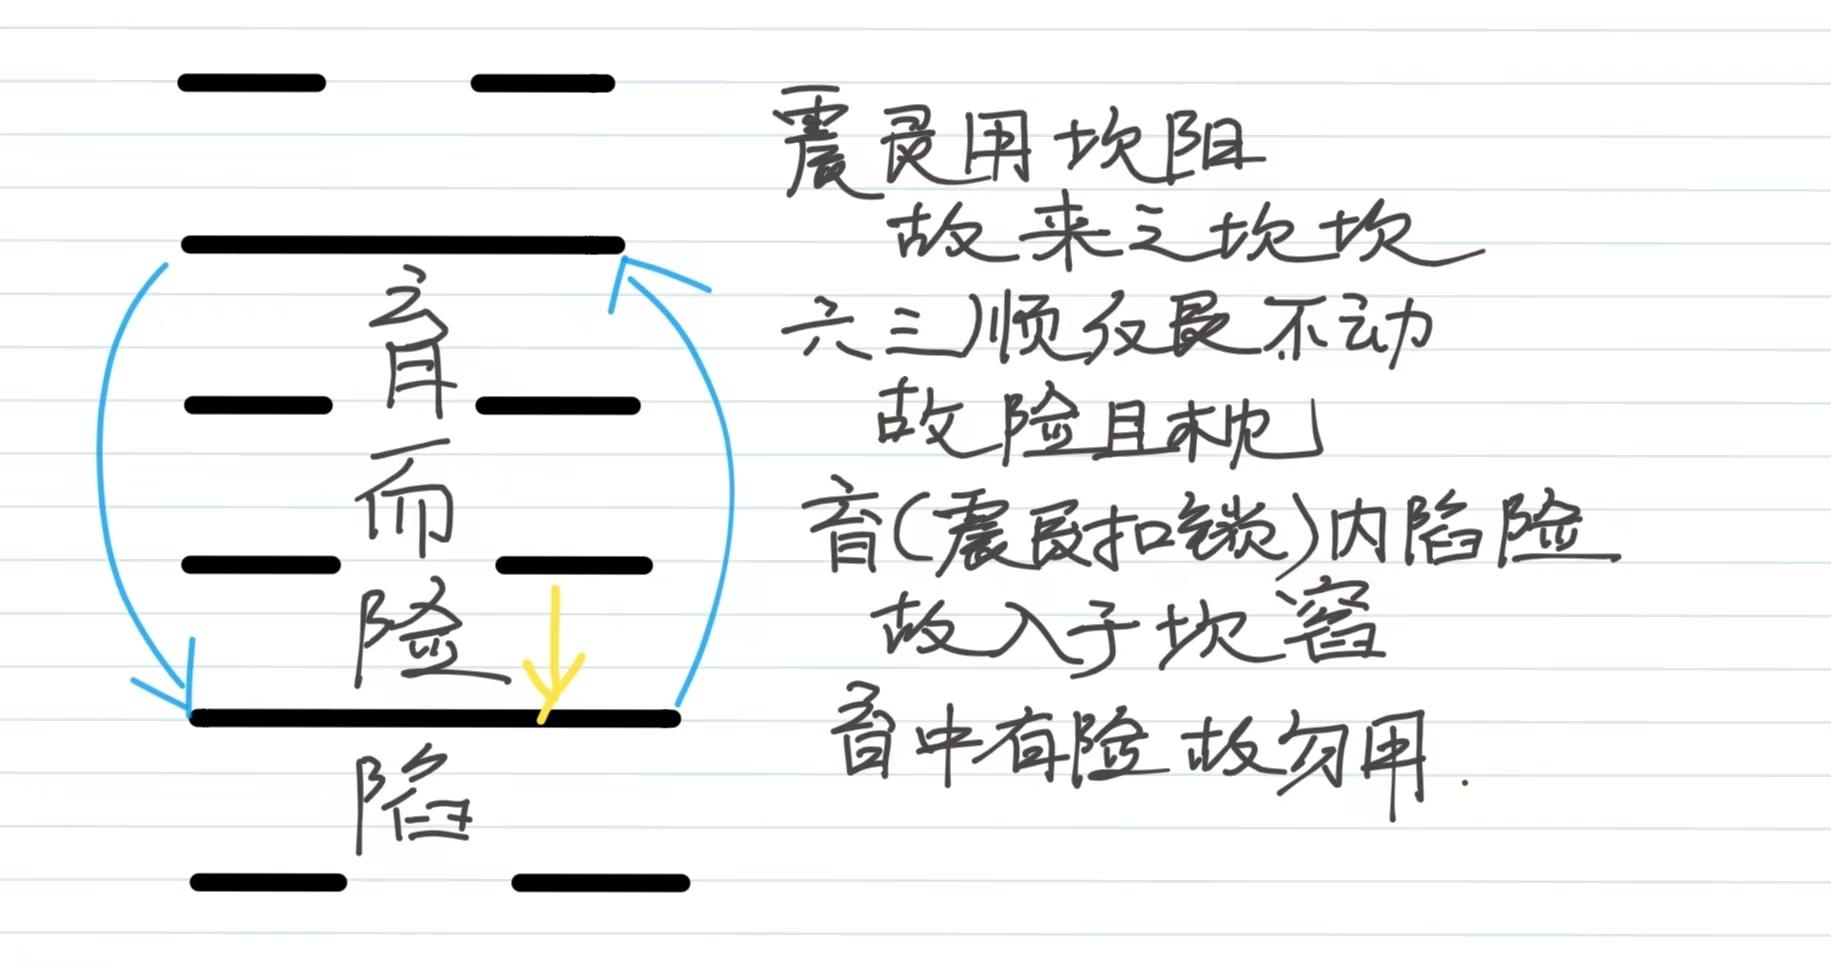 育而险陷
震艮用坎阳
故来之坎坎
六三顺仅艮不动
故险且枕
育(震艮扣锁)内陷险
故入于坎窞
育中有险故勿用.